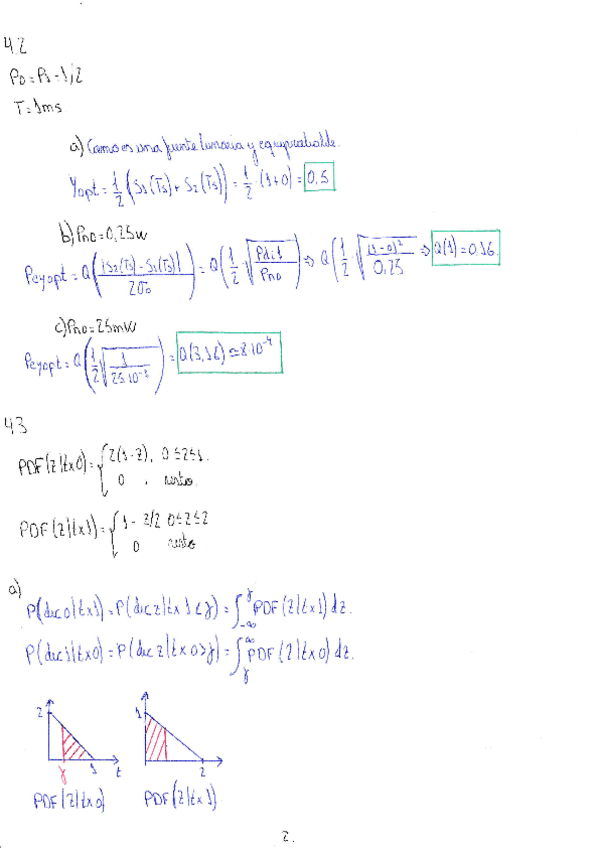 4.2
P0 = P1 = 1/2
T = 1ms
a) Como es una fuente binaria y equiprobable.
γopt = 1/2 (S1(Ts) + S2(Ts)) = 1/2 · (1+0) = 0,5
b) Pno = 0,25w
Peγopt = Q(|S2(Ts) - S1(Ts)| / 2σo) = Q(1/2 · √(Pdif / Pno)) ⇒ Q(1/2 · √((1-0)² / 0,25 ⇒ Q(1) = 0,16.
c) Pno = 25mW
Peγopt = Q(1/2 √(1 / 25·10⁻³)) = Q(3,16) ≃ 8·10⁻⁴
4.3
PDF(z|tx0) = { 2(1-z), 0≤z≤1.
0 , resto.
PDF(z|tx1) = { 1 - z/2 0≤z≤2
0 resto
a)
P(dec0|tx1) = P(dec z|tx1<γ) = ∫_{-∞}^{γ} PDF(z|tx1) dz.
P(dec1|tx0) = P(dec z|tx0>γ) = ∫_{γ}^{∞} PDF(z|tx0) dz.
2 1
γ 1 z 2
PDF(z|tx0) PDF(z|tx1)
2.